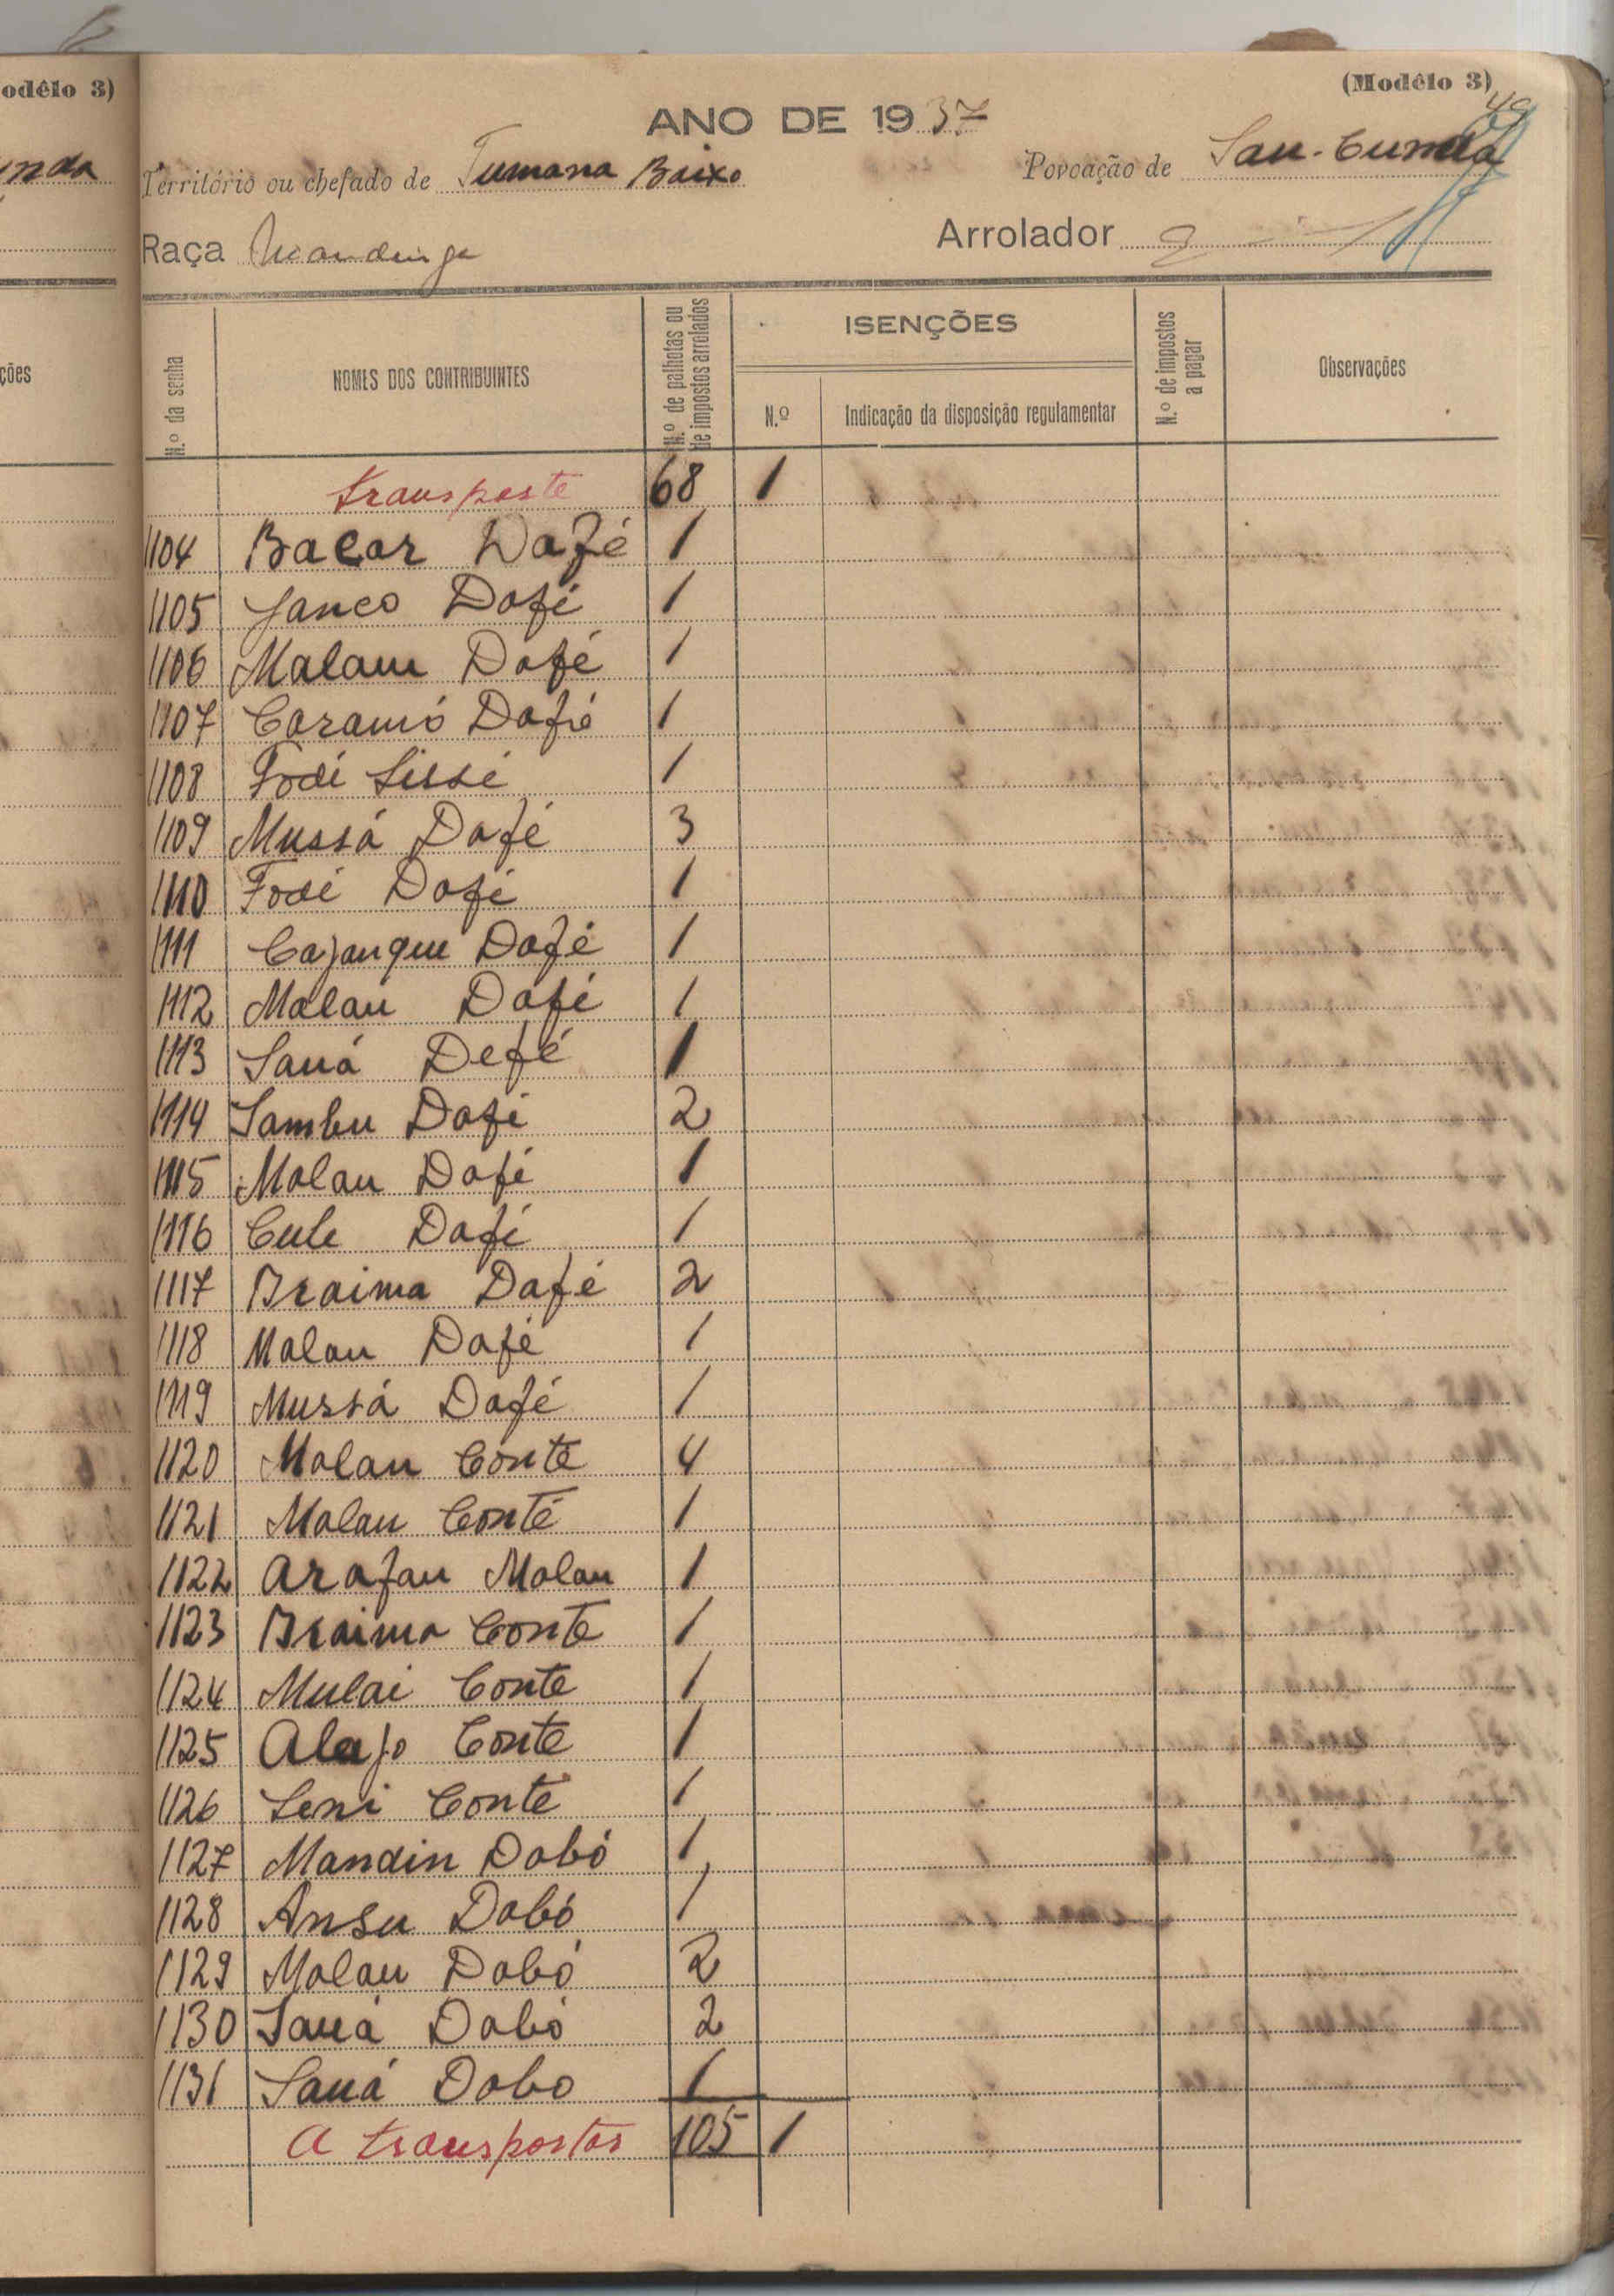 odêlo 3)
(Modêlo 3)
49
ANO DE 1937
nda
Território ou chefado de Tumana Baixo
Povoação de San-Cunda
Raça Mandinga
Arrolador
ções
N.º da senha
NOMES DOS CONTRIBUINTES
N.º de palhotas ou de impostos arrolados
ISENÇÕES
N.º
Indicação da disposição regulamentar
N.º de impostos a pagar
Observações
transporte 68 1
1104 Bacar Dafé 1
1105 Janco Dafé 1
1106 Malam Dafé 1
1107 Caramó Dafé 1
1108 Fodé Sissé 1
1109 Mussá Dafé 3
1110 Fodé Dafé 1
1111 Cajanque Dafé 1
1112 Malan Dafé 1
1113 Saná Defé 1
1114 Sambu Dafé 2
1115 Malan Dafé 1
1116 Cule Dafé 1
1117 Braima Dafé 2
1118 Malan Dafé 1
1119 Mussá Dafé 1
1120 Malan Conte 4
1121 Malan Conté 1
1122 Arafan Malan 1
1123 Braima Conte 1
1124 Mulai Conte 1
1125 Alajo Conte 1
1126 Seni Conte 1
1127 Mandin Dabó 1
1128 Ansu Dabó 1
1129 Malan Dabó 2
1130 Saná Dabó 2
1131 Saná Dabo 1
A transportar 105 1